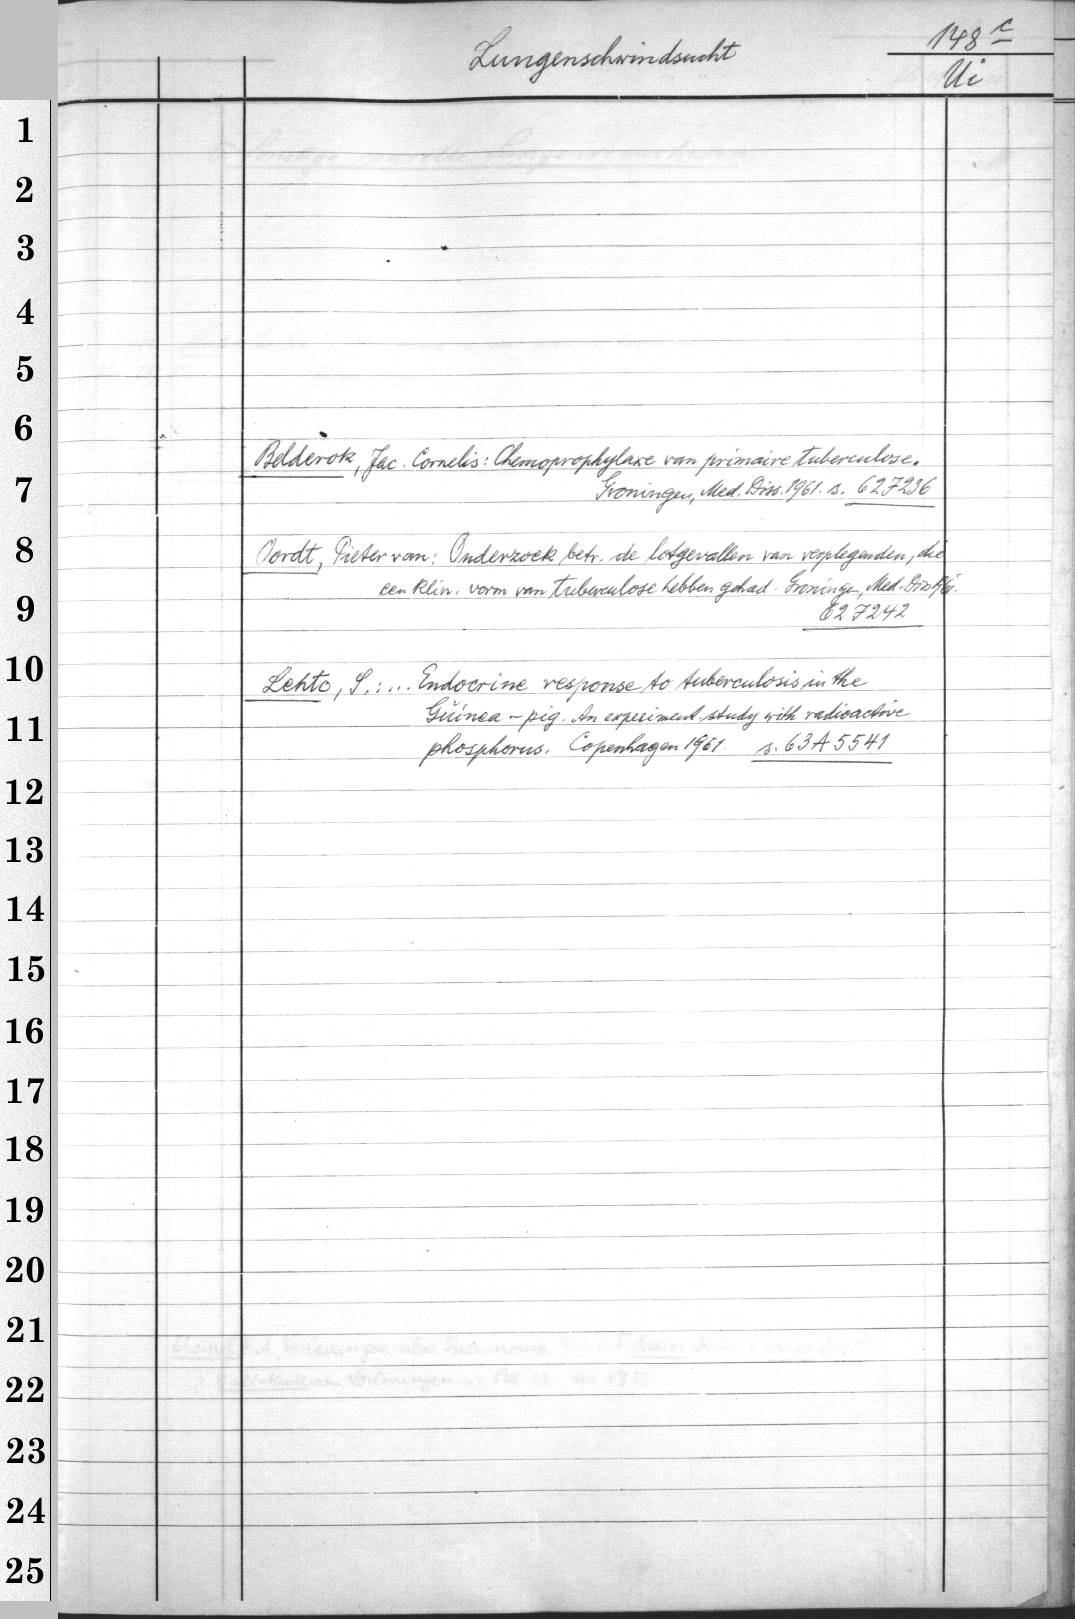 Lungenschwindsucht
148 c
Ui
1
2
3
4
5
6
Belderok, Jac. Cornelis: Chemoprophylaxe van primaire tuberculose.
7
Groningen, Med. Diss. 1961. s. 627236
8
Oordt, Pieter van: Onderzoek betr. de lotgevallen van verplegenden, die
een klin. vorm van tuberculose hebben gehad. Groningen, Med. Diss.
9
627242
10
Lehto, S.: ... Endocrine response to tuberculosis in the
Guinea-pig. An experiment. study with radioactive
11
phosphorus. Copenhagen 1961 s. 63A5541
12
13
14
15
16
17
18
19
20
21
22
23
24
25